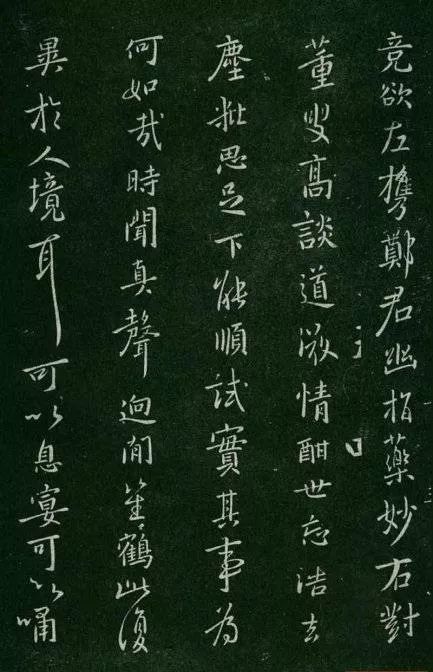 竞欲左攜鄭君幽指藥妙右對
董叟高談道情酣世忘浩去
塵粃思足下能順試實其事為
何如哉時聞真聲迥閒笙鶴此復
異於人境耳可以息宴可以嘯